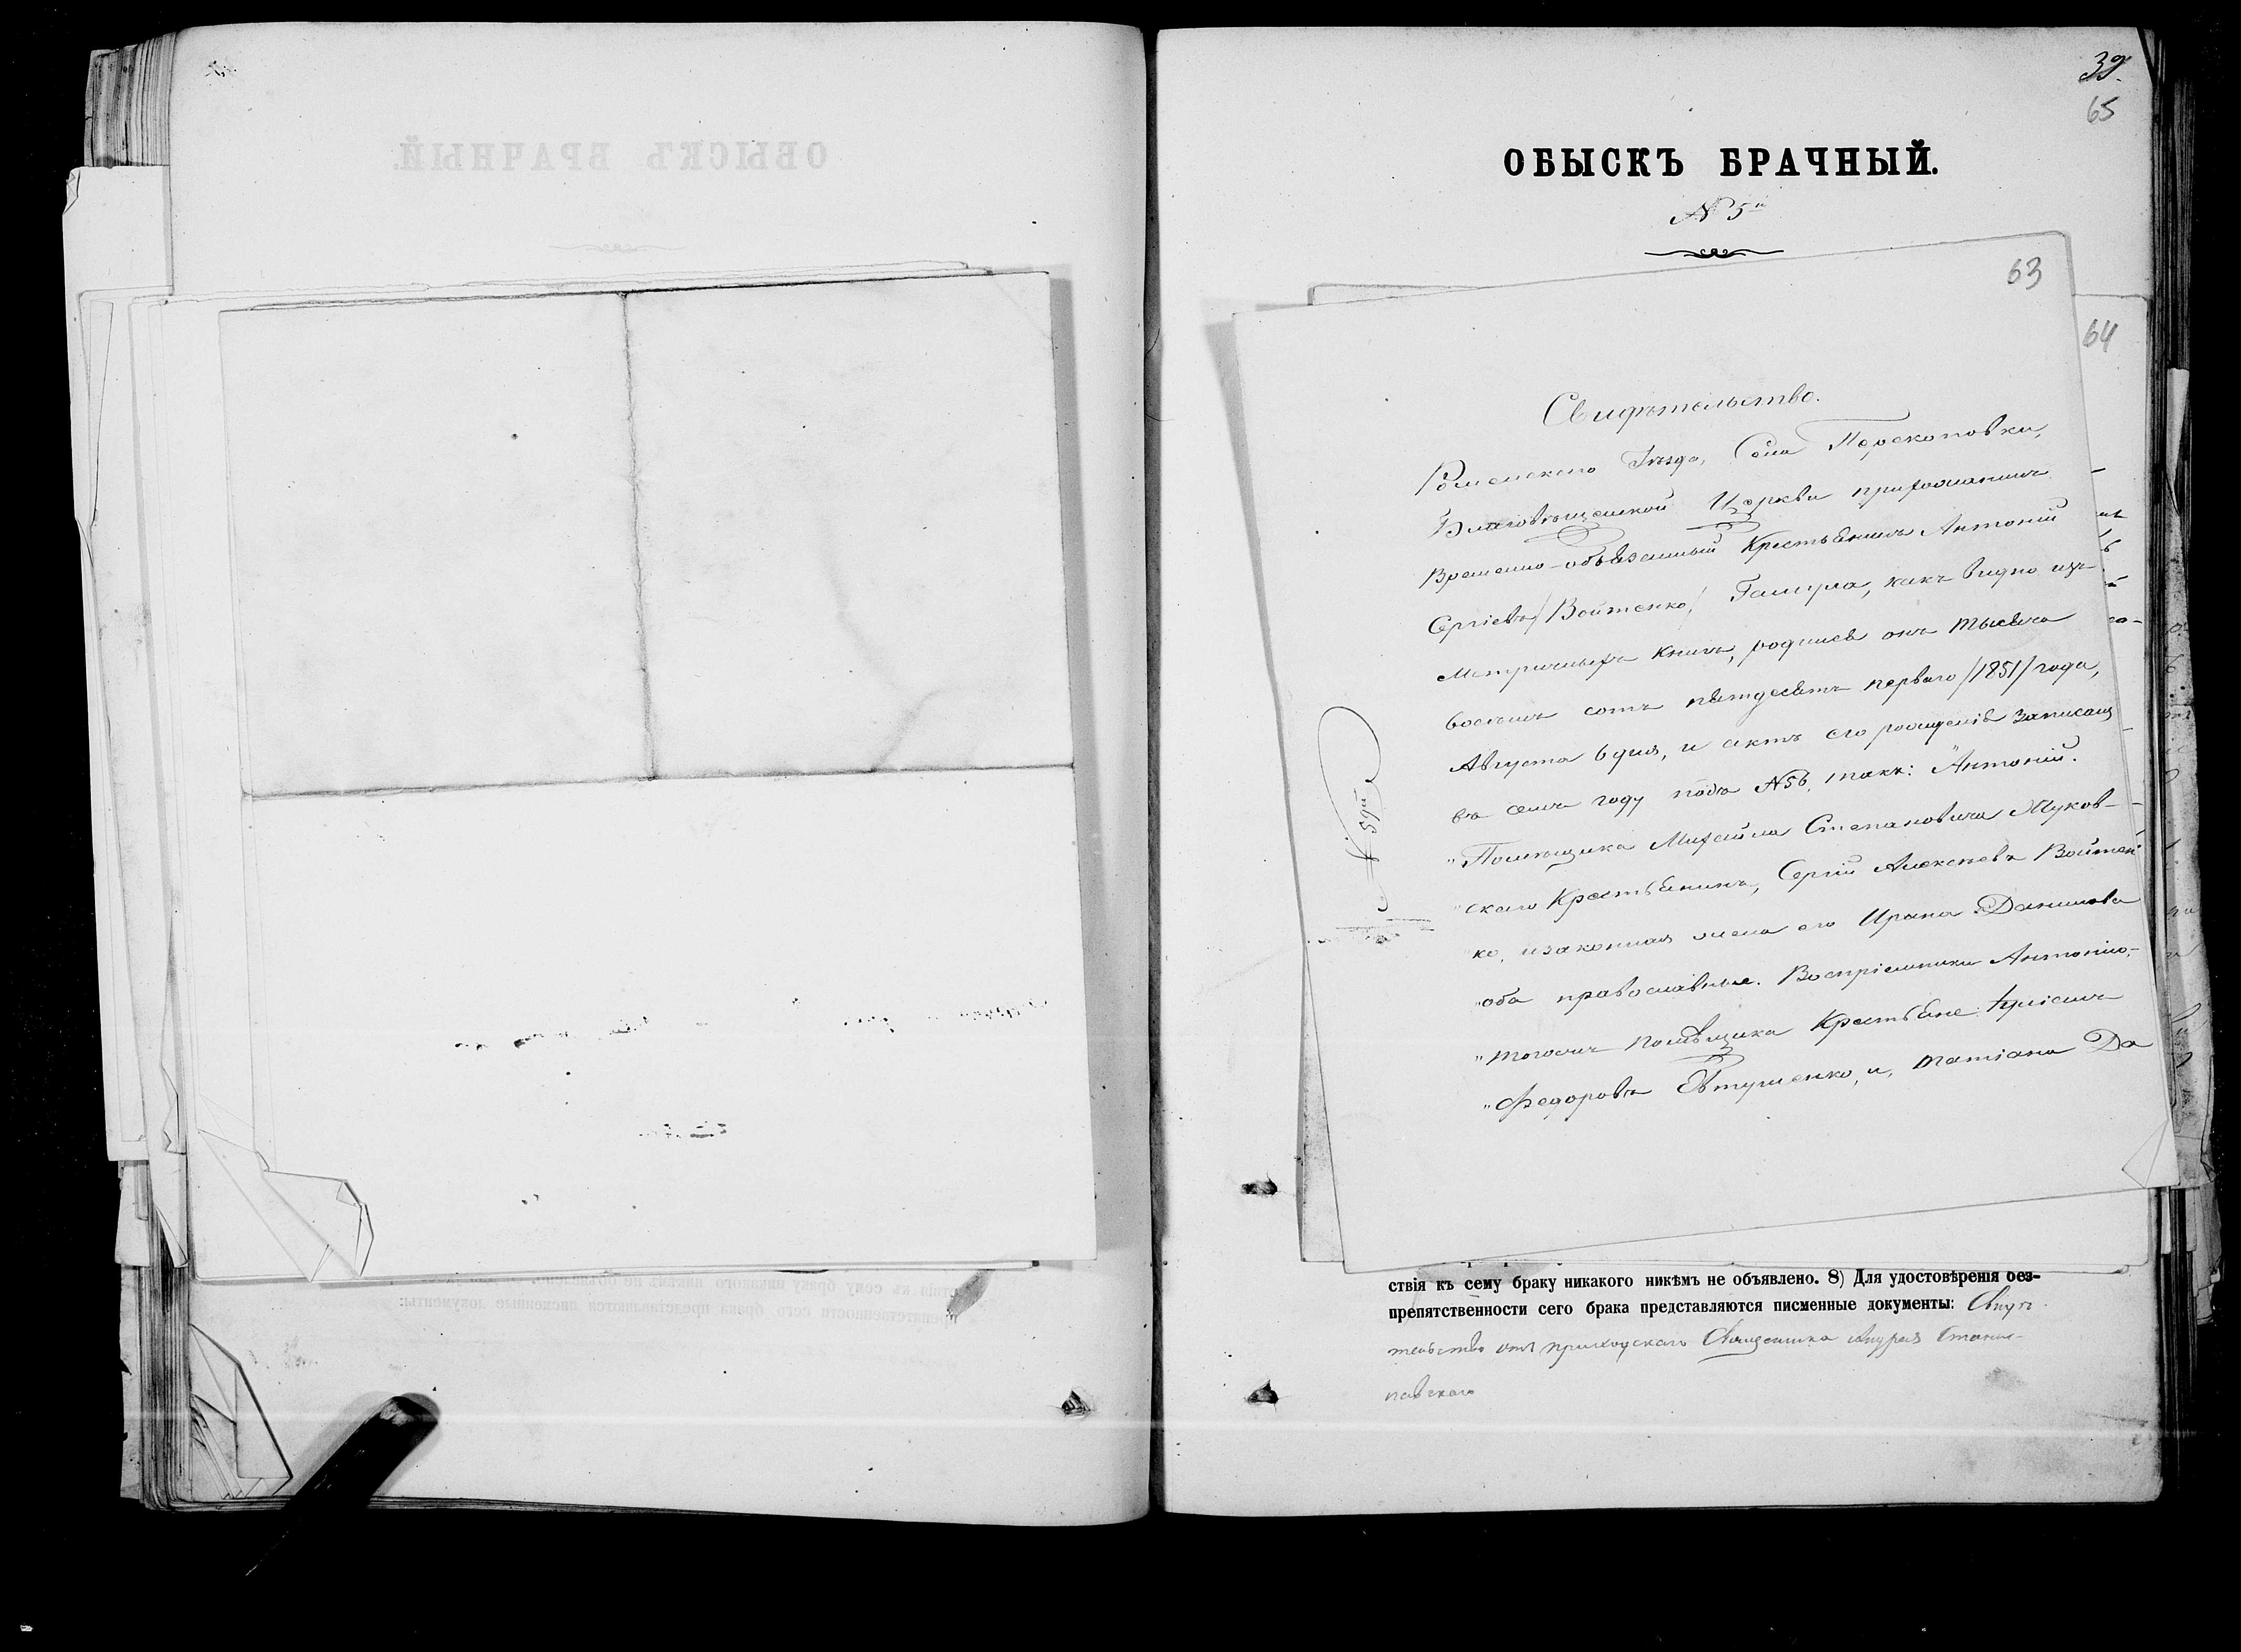 39.
65
ОБЫСКЪ БРАЧНЫЙ.
№ 5й
63
64
Свидѣтельство.
Роменскаго Уѣзда, Села Перекоповки,
Благовѣщенской Церкви прихожанинъ
Временно-обязанный Крестьянинъ Антоній
Сергіевъ /Войтенко/ Галира, какъ видно изъ
Метричныхъ книгъ, родился онъ тысяча
восемь сотъ пятдесятъ перваго /1851/ года,
Августа 6 дня, и актъ его рожденія записанъ
въ семъ году подъ №56, такъ: "Антоній.
"Помѣщика Михайла Степановича Муков-
"скаго Крестьянинъ, Сергій Алексѣевъ Войтен
"ко, и законная жена его Ирина Данилова
"оба православные. Воспріемники Антонію,-
"тогожъ помѣщика Крестьяне:
"Федоровъ Евтушенко, и, Татіана Да
ствія къ сему браку никакого никѣмъ не объявлено. 8) Для удостовѣрения без-
препятственности сего брака представляются писменные документы: Свидѣ-
тельство отъ приходскаго Священника Андрея Станис-
лавскаго